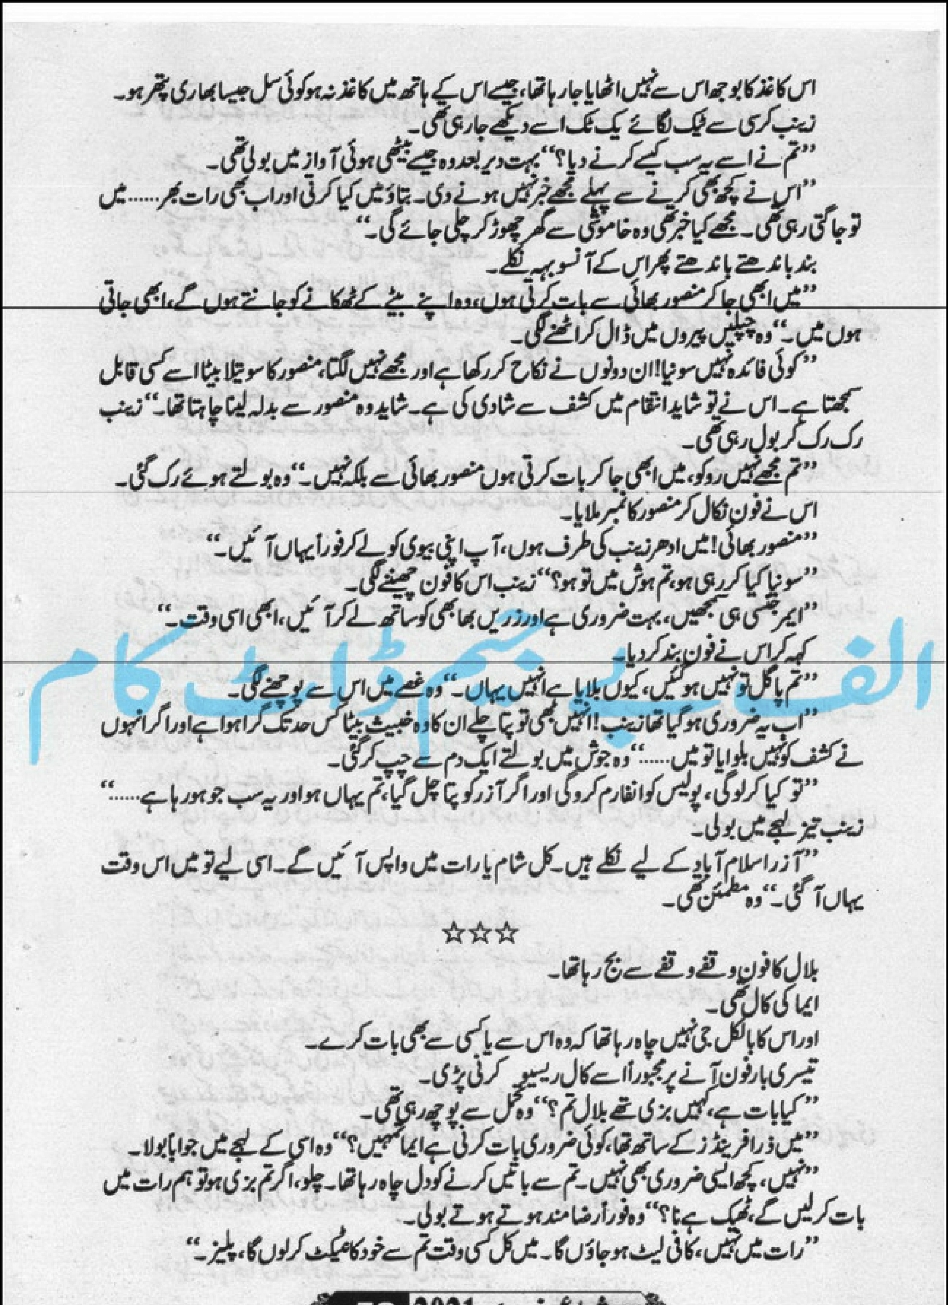 اس کاغذ کا بوجھ اس سے نہیں اٹھایا جا رہا تھا، جیسے اس کے ہاتھ میں کاغذ نہ ہو کوئی سل جیسا بھاری پتھر ہو۔
زینب کرسی سے ٹیک لگائے یک ٹک اسے دیکھے جا رہی تھی۔
”تم نے اسے یہ سب کیسے کرنے دیا؟“ بہت دیر بعد وہ جیسے بیٹھی ہوئی آواز میں بولی تھی۔
”اس نے کچھ بھی کرنے سے پہلے مجھے خبر نہیں ہونے دی۔ بتاؤ میں کیا کرتی اور اب بھی رات بھر...... میں
تو جاگتی رہی تھی۔ مجھے کیا خبر تھی وہ خاموشی سے گھر چھوڑ کر چلی جائے گی۔“
بند باندھتے باندھتے پھر اس کے آنسو بہہ نکلے۔
”میں ابھی جا کر منصور بھائی سے بات کرتی ہوں، وہ اپنے بیٹے کے ٹھکانے کو جانتے ہوں گے، ابھی جاتی
ہوں میں۔“ وہ چپلیں پیروں میں ڈال کر اٹھنے لگی۔
”کوئی فائدہ نہیں سونیا! ان دونوں نے نکاح کر رکھا ہے اور مجھے نہیں لگتا، منصور کا سوتیلا بیٹا اسے کسی قابل
سمجھتا ہے۔ اس نے تو شاید انتقام میں کشف سے شادی کی ہے۔ شاید وہ منصور سے بدلہ لینا چاہتا تھا۔“ زینب
رک رک کر بول رہی تھی۔
”تم مجھے نہیں روکو، میں ابھی جا کر بات کرتی ہوں منصور بھائی سے بلکہ نہیں۔“ وہ بولتے ہوئے رک گئی۔
اس نے فون نکال کر منصور کا نمبر ملایا۔
”منصور بھائی! میں ادھر زینب کی طرف ہوں، آپ اپنی بیوی کو لے کر فوراً یہاں آئیں۔“
”سونیا کیا کر رہی ہو، تم ہوش میں تو ہو؟“ زینب اس کا فون چھیننے لگی۔
”ایمرجنسی ہی سمجھیں، بہت ضروری ہے اور زریں بھابھی کو ساتھ لے کر آئیں، ابھی اسی وقت۔“
کہہ کر اس نے فون بند کر دیا۔
”تم پاگل تو نہیں ہو گئیں، کیوں بلایا ہے انہیں یہاں۔“ وہ غصے میں اس سے پوچھنے لگی۔
”اب یہ ضروری ہو گیا تھا زینب! انہیں بھی تو پتا چلے ان کا وہ خبیث بیٹا کس حد تک گرا ہوا ہے اور اگر انہوں
نے کشف کو نہیں بلوایا تو میں......“ وہ جوش میں بولتے ایک دم سے چپ کر گئی۔
”تو کیا کر لو گی، پولیس کو انفارم کرو گی اور اگر آزر کو پتا چل گیا، تم یہاں ہو اور یہ سب جو ہو رہا ہے......“
زینب تیز لہجے میں بولی۔
”آزر اسلام آباد کے لیے نکلے ہیں۔ کل شام یا رات میں واپس آئیں گے۔ اسی لیے تو میں اس وقت
یہاں آ گئی۔“ وہ مطمئن تھی۔
☆☆☆
بلال کا فون وقفے وقفے سے بج رہا تھا۔
ایما کی کال تھی۔
اور اس کا بالکل جی نہیں چاہ رہا تھا کہ وہ اس سے یا کسی سے بھی بات کرے۔
تیسری بار فون آنے پر مجبوراً اسے کال ریسیو کرنی پڑی۔
”کیا بات ہے، کہیں بزی تھے بلال تم؟“ وہ تحمل سے پوچھ رہی تھی۔
”میں ذرا فرینڈز کے ساتھ تھا، کوئی ضروری بات کرنی ہے ایما تمہیں؟“ وہ اسی کے لہجے میں جواباً بولا۔
”نہیں، کچھ ایسی ضروری بھی نہیں۔ تم سے باتیں کرنے کو دل چاہ رہا تھا۔ چلو، اگر تم بزی ہو تو ہم رات میں
بات کر لیں گے، ٹھیک ہے نا؟“ وہ فوراً رضامند ہوتے ہوتے بولی۔
”رات میں نہیں، کافی لیٹ ہو جاؤں گا۔ میں کل کسی وقت تم سے خود کانٹیکٹ کر لوں گا، پلیز۔“
الف پے جیم ڈاٹ کام
2021